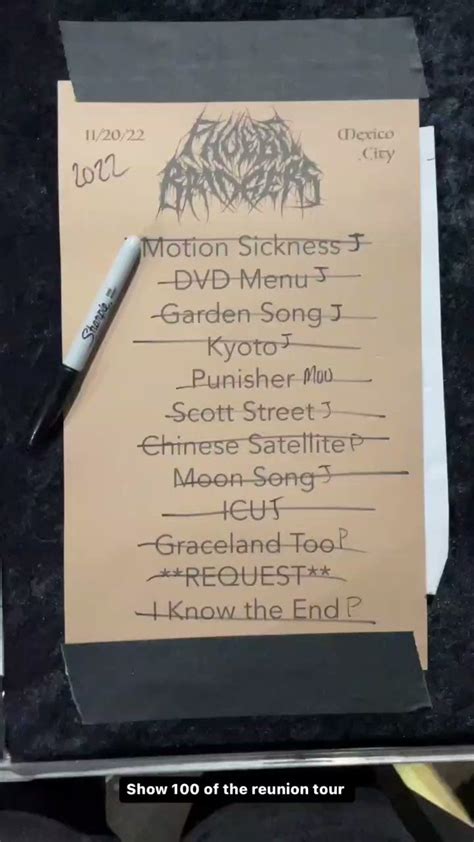 11/20/22
PHOEBE
BRIDGERS
Mexico
City
2022
Sharpie
Motion Sickness J
DVD Menu J
Garden Song J
Kyoto J
Punisher Mou
Scott Street J
Chinese Satellite P
Moon Song J
ICU J
Graceland Too P
**REQUEST**
I Know the End P
Show 100 of the reunion tour